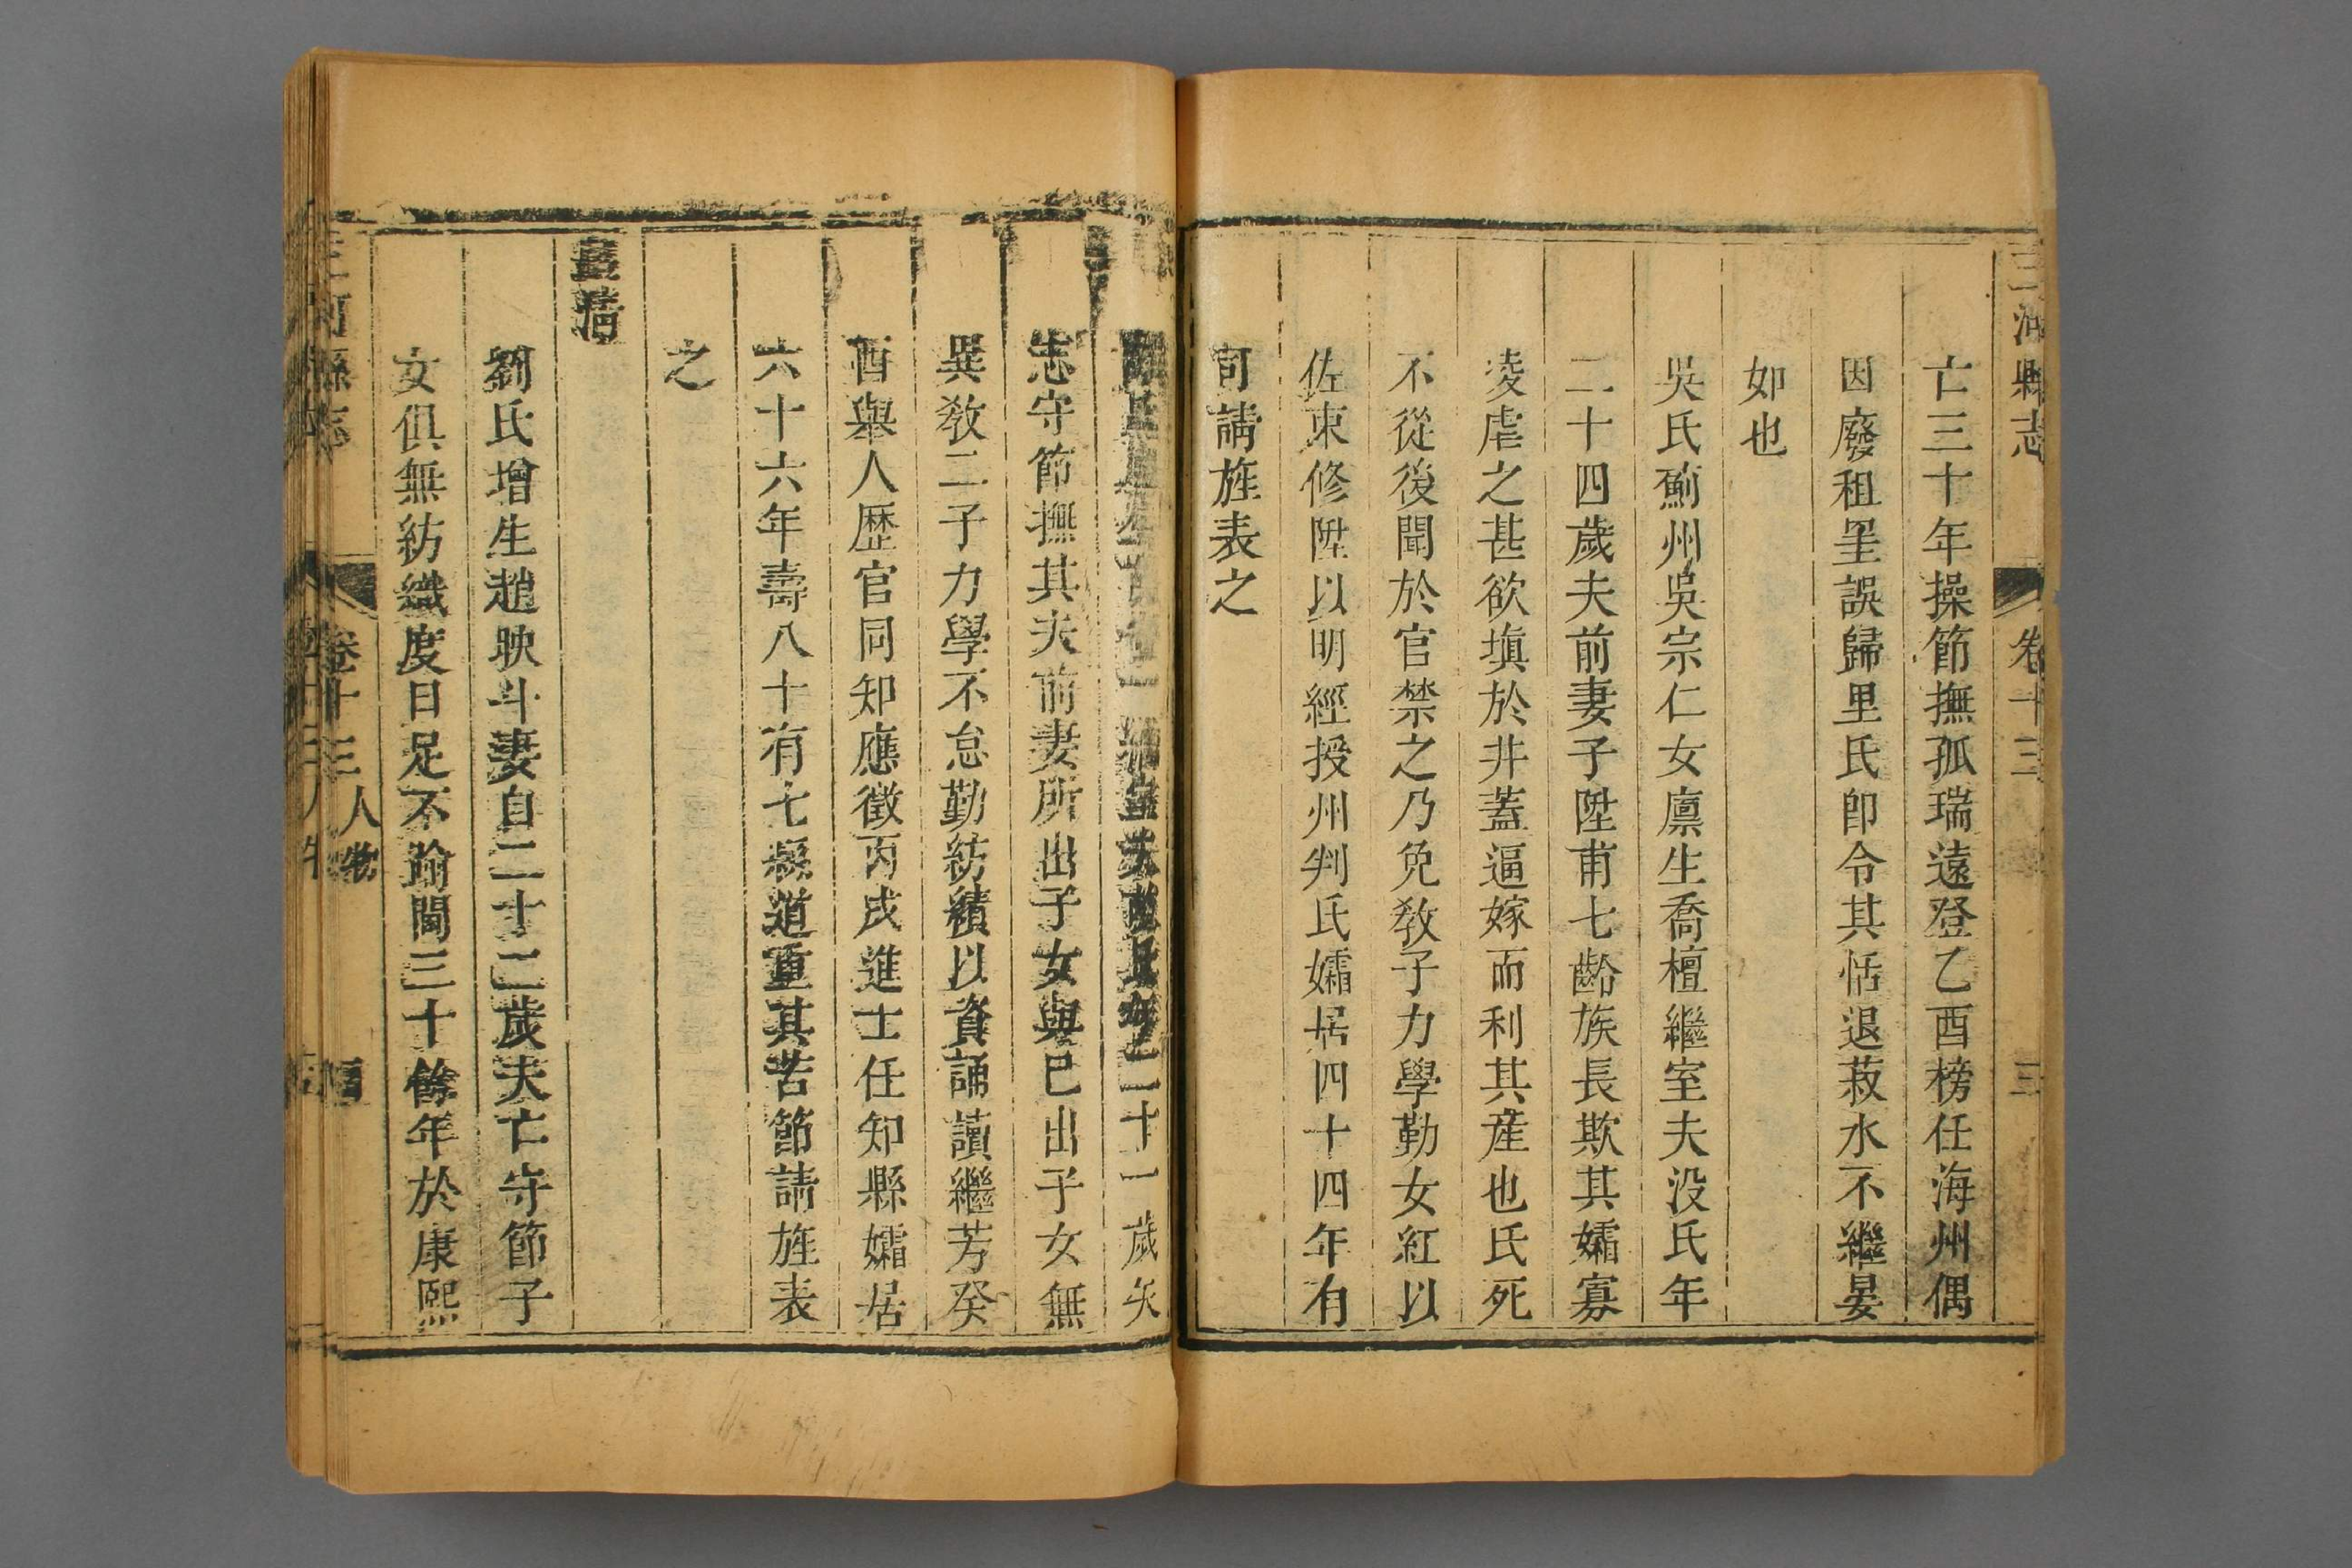 三河縣志 卷十三 三
亡三十年操節撫孤瑞遠登乙酉榜任海州偶
因廢租罣誤歸里氏卽令其恬退菽水不繼晏
如也
吳氏薊州吳宗仁女廩生喬檀繼室夫没氏年
二十四歲夫前妻子陞甫七齡族長欺其孀寡
凌虐之甚欲塡於井蓋逼嫁而利其產也氏死
不從後聞於官禁之乃免教子力學勤女紅以
佐束修陞以明經授州判氏孀居四十四年有
司請旌表之
二十一歲矢
志守節撫其夫前妻所出子女與已出子女無
異教二子力學不怠勤紡績以資誦讀繼芳癸
酉舉人歷官同知應徵丙戌進士任知縣孀居
六十六年壽八十有七縣道重其苦節請旌表
之
劉氏增生趙映斗妻自二十二歲夫亡守節子
女俱無紡織度日足不踰閫三十餘年於康熙
三河縣志 卷十三 人物